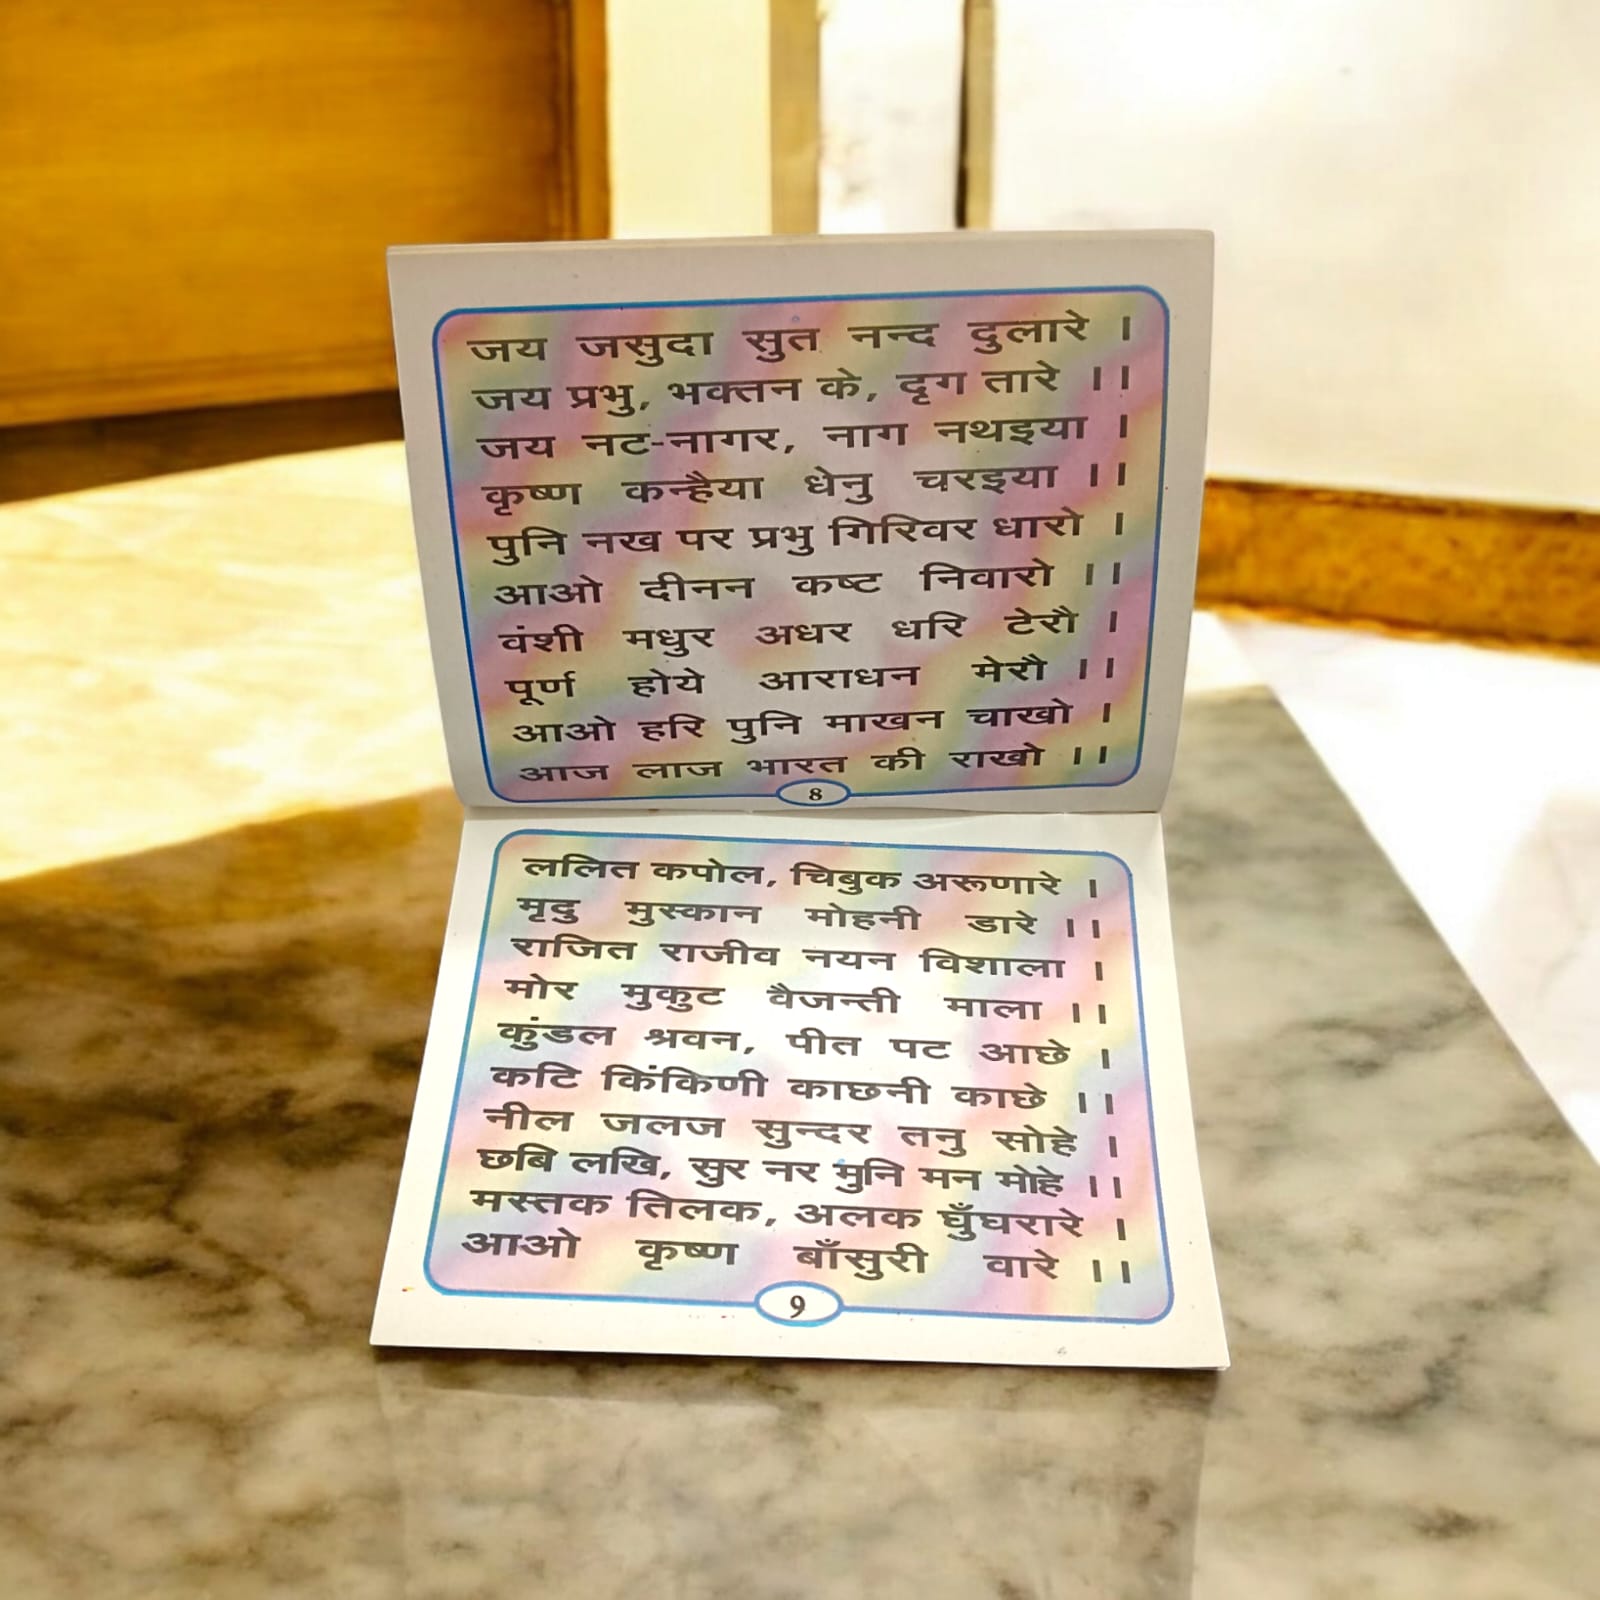 जय जसुदा सुत नन्द दुलारे ।
जय प्रभु, भक्तन के, दृग तारे ।।
जय नट-नागर, नाग नथइया ।
कृष्ण कन्हैया धेनु चरइया ।।
पुनि नख पर प्रभु गिरिवर धारो ।
आओ दीनन कष्ट निवारो ।।
वंशी मधुर अधर धरि टेरौ ।
पूर्ण होये आराधन मेरौ ।।
आओ हरि पुनि माखन चाखो ।
आज लाज भारत की राखो ।।
8
ललित कपोल, चिबुक अरूणारे ।
मृदु मुस्कान मोहनी डारे ।।
राजित राजीव नयन विशाला ।
मोर मुकुट वैजन्ती माला ।।
कुंडल श्रवन, पीत पट आछे ।
कटि किंकिणी काछनी काछे ।।
नील जलज सुन्दर तनु सोहे ।
छबि लखि, सुर नर मुनि मन मोहे ।।
मस्तक तिलक, अलक घुँघरारे ।
आओ कृष्ण बाँसुरी वारे ।।
9